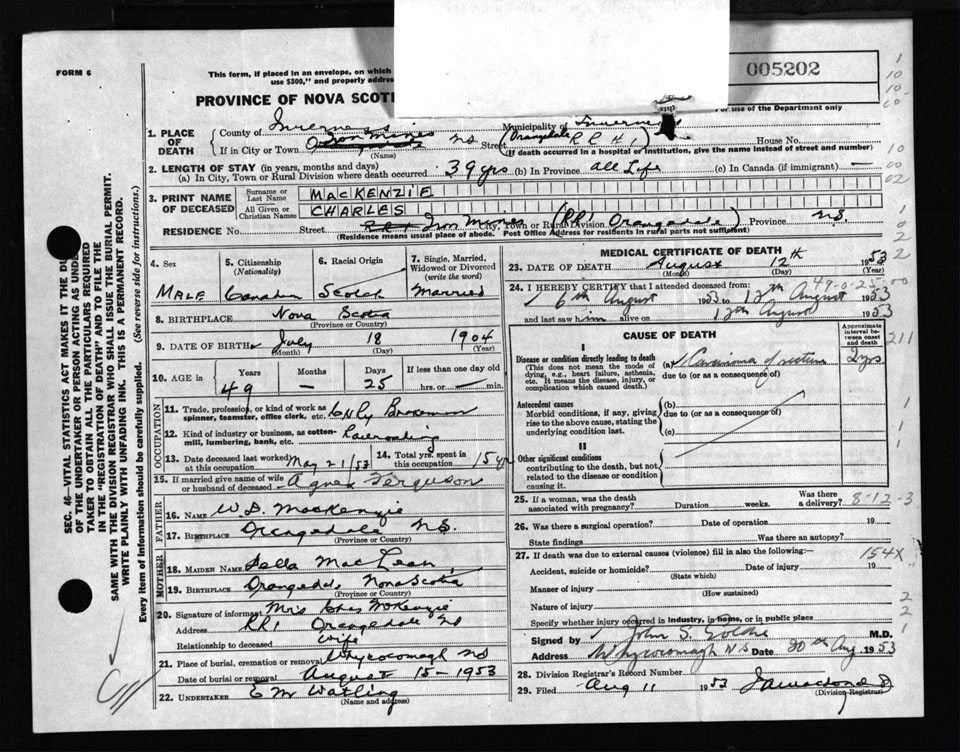 FORM 6
This form, if placed in an envelope, on which
use $300," and properly addre
PROVINCE OF NOVA SCOTI
005202
For use of the Department only
1. PLACE OF DEATH
County of Inverness
Municipality of Inverness
If in City or Town Iron Mines NS Street (Orangedale RR # 1) House No.
(Name) (If death occurred in a hospital or institution, give the name instead of street and number)
2. LENGTH OF STAY (in years, months and days)
(a) In City, Town or Rural Division where death occurred 39 yrs (b) In Province all Life (c) In Canada (if immigrant) —
3. PRINT NAME OF DECEASED
Surname or Last Name MACKENZIE
All Given or Christian Names CHARLES
RESIDENCE No. Street RR1 Iron Mines City, Town or Rural Division (RR1 Orangedale) Province N.S.
(Residence means usual place of abode. Post Office Address for residents in rural parts not sufficient)
4. Sex
MALE
5. Citizenship (Nationality)
Canadian
6. Racial Origin
Scotch
7. Single, Married, Widowed or Divorced (write the word)
Married
8. BIRTHPLACE Nova Scotia
(Province or Country)
9. DATE OF BIRTH July 18 1904
(Month) (Day) (Year)
10. AGE in Years Months Days If less than one day
49 — 25 hrs. or — min.
OCCUPATION
11. Trade, profession, or kind of work as spinner, teamster, office clerk, etc. Brakeman
12. Kind of industry or business, as cotton-mill, lumbering, bank, etc.
13. Date deceased last worked at this occupation May 21/53
14. Total yrs. spent in this occupation 15 yrs
15. If married give name of wife or husband of deceased Agnes Ferguson
FATHER
16. NAME W D. MacKenzie
17. BIRTHPLACE Orangedale N.S.
(Province or Country)
MOTHER
18. MAIDEN NAME MacLean
19. BIRTHPLACE Orangedale Nova Scotia
(Province or Country)
20. Signature of informant Mrs Chas McKenzie
Address RR1 Orangedale NS
Relationship to deceased Wife
21. Place of burial, cremation or removal Whycocomagh NS
Date of burial or removal August 15 - 1953
22. UNDERTAKER E M Watling
(Name and address)
MEDICAL CERTIFICATE OF DEATH
23. DATE OF DEATH August 12th 1953
(Month) (Day) (Year)
24. I HEREBY CERTIFY that I attended deceased from:
6th August 1953 to 12th August 1953
and last saw him alive on 12th August 1953
CAUSE OF DEATH
Approximate interval between onset and death
I
Disease or condition directly leading to death
(This does not mean the mode of dying, e.g., heart failure, asthenia, etc. It means the disease, injury, or complication which caused death.)
(a) Carcinoma of rectum 2 yrs
due to (or as a consequence of)
Antecedent causes
Morbid conditions, if any, giving rise to the above cause, stating the underlying condition last.
(b)
due to (or as a consequence of)
(c)
II
Other significant conditions
contributing to the death, but not related to the disease or condition causing it.
25. If a woman, was the death associated with pregnancy? Duration weeks. Was there a delivery?
8-12-3
26. Was there a surgical operation? Date of operation 19
State findings Was there an autopsy?
27. If death was due to external causes (violence) fill in also the following:—
154X
Accident, suicide or homicide? Date of injury 19
(State which)
Manner of injury
(How sustained)
Nature of injury
Specify whether injury occurred in industry, in home, or in public place
Signed by John S. Goldie M.D.
Address Whycocomagh N S Date 20th Aug 1953
28. Division Registrar's Record Number
29. Filed Aug 11 1953
(Division Registrar)
SEC. 46—VITAL STATISTICS ACT MAKES IT THE DU
OF THE UNDERTAKER OR PERSON ACTING AS UNDE
TAKER TO OBTAIN ALL THE PARTICULARS REQUIRED
IN THE "REGISTRATION OF DEATH" AND TO FILE THE
SAME WITH THE DIVISION REGISTRAR WHO SHALL ISSUE THE BURIAL PERMIT.
WRITE PLAINLY WITH UNFADING INK. THIS IS A PERMANENT RECORD.
Every item of information should be carefully supplied. (See reverse side for instructions.)